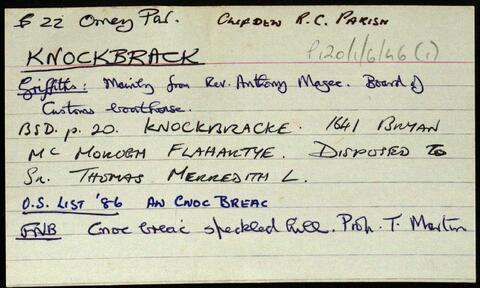 S 22 Omey Par. CLIFDEN R.C. PARISH
P120/1/6/46 (i)
KNOCKBRACK
Griffiths: Mainly from Rev. Anthony Magee. Board of
Customs boathouse.
BSD. p. 20. KNOCKBRACKE. 1641 BRYAN
MC MOROGH FLAHARTYE. DISPOSED TO
Sr. THOMAS MERREDITH L.
O.S. LIST '86 AN CNOC BREAC
FNB Cnoc breac speckled hill. Proh. T. Martin